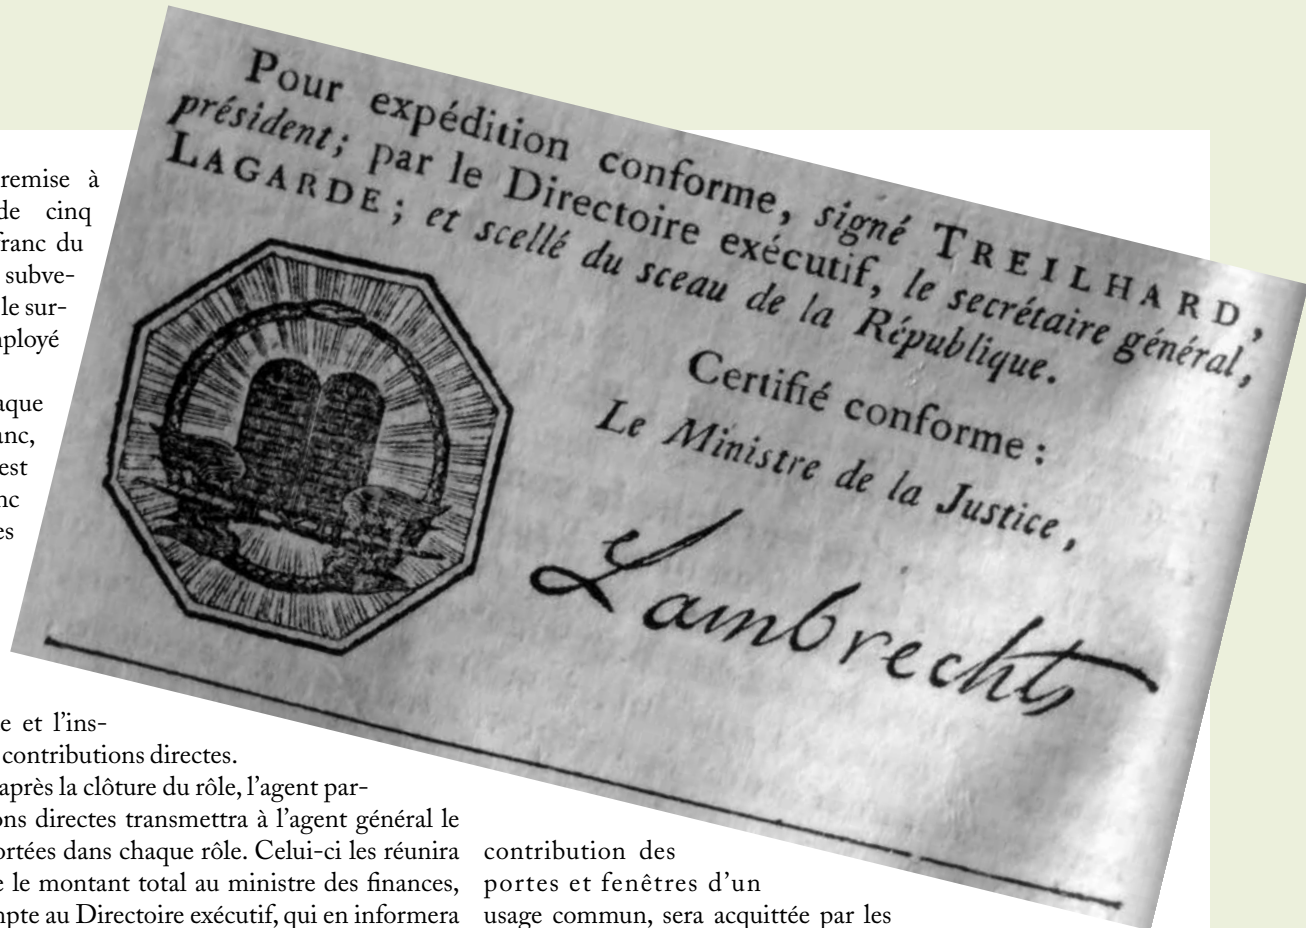 Pour expédition conforme, signé TREILHARD,
président; par le Directoire exécutif, le secrétaire général,
LAGARDE; et scellé du sceau de la République.
Certifié conforme :
Le Ministre de la Justice,
Lambrechts
remise à
de cinq
franc du
subve-
le sur-
est
e et l’ins-
contributions directes.
après la clôture du rôle, l’agent par-
directes transmettra à l’agent général le
dans chaque rôle. Celui-ci les réunira
le montant total au ministre des finances,
au Directoire exécutif, qui en informera
contribution des
portes et fenêtres d’un
usage commun, sera acquittée par les